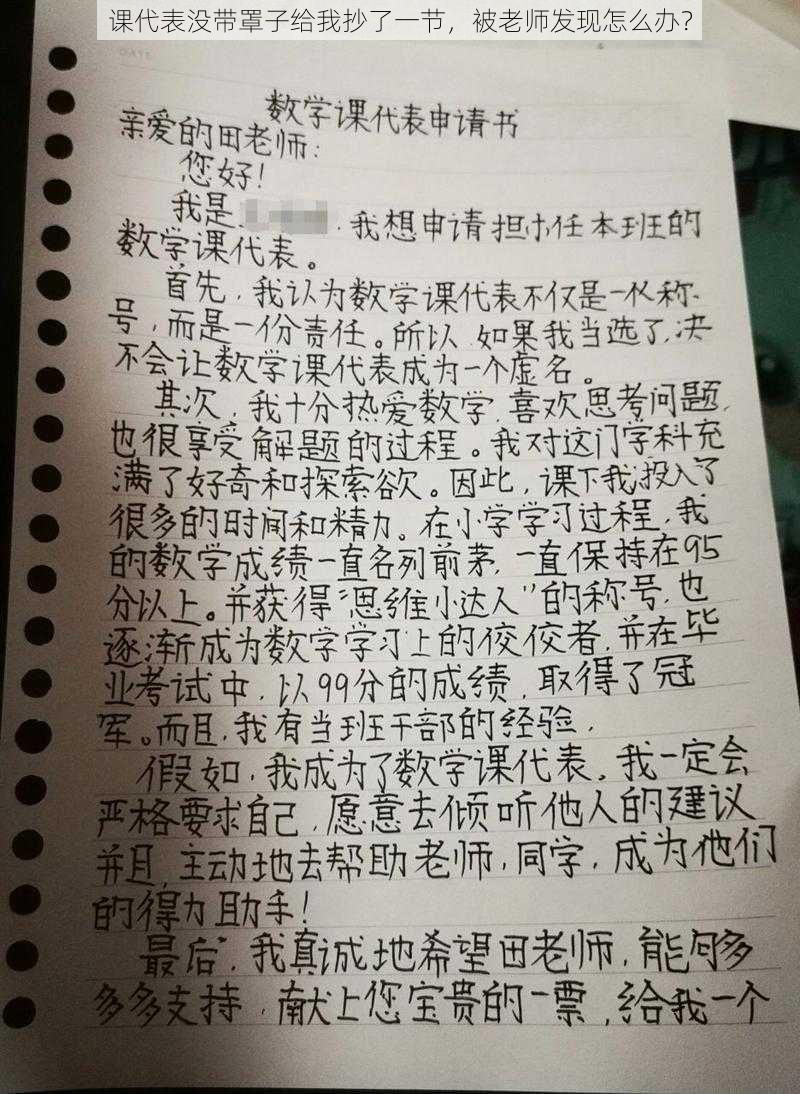 课代表没带罩子给我抄了一节，被老师发现怎么办？
DATE
数学课代表申请书
亲爱的田老师：
您好！
我是 ，我想申请担任本班的
数学课代表。
首先，我认为数学课代表不仅是一份称
号，而是一份责任。所以，如果我当选了，决
不会让数学课代表成为一个虚名。
其次，我十分热爱数学，喜欢思考问题，
也很享受解题的过程。我对这门学科充
满了好奇和探索欲。因此，课下我投入了
很多的时间和精力。在小学学习过程，我
的数学成绩一直名列前茅，一直保持在95
分以上。并获得“思维小达人”的称号，也
逐渐成为数学学习上的佼佼者，并在毕
业考试中，以99分的成绩，取得了冠
军。而且，我有当班干部的经验，
假如，我成为了数学课代表。我一定会
严格要求自己，愿意去倾听他人的建议
并且，主动地去帮助老师，同学，成为他们
的得力助手！
最后，我真诚地希望田老师，能够多
多多支持，献上您宝贵的一票，给我一个